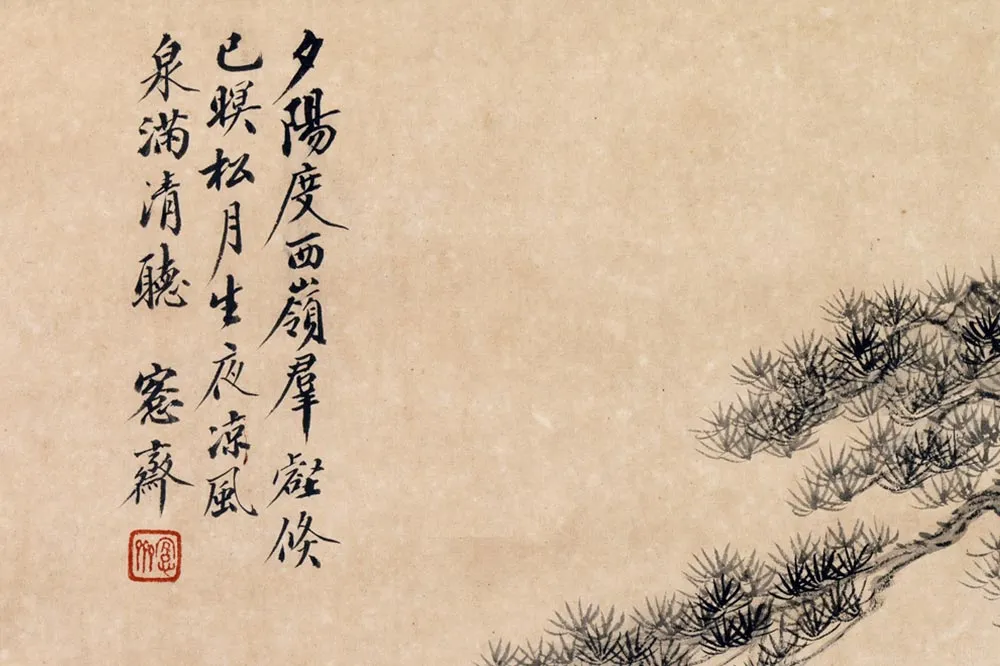 夕陽度西嶺羣壑倏
已暝松月生夜涼風
泉滿清聽 愙齋